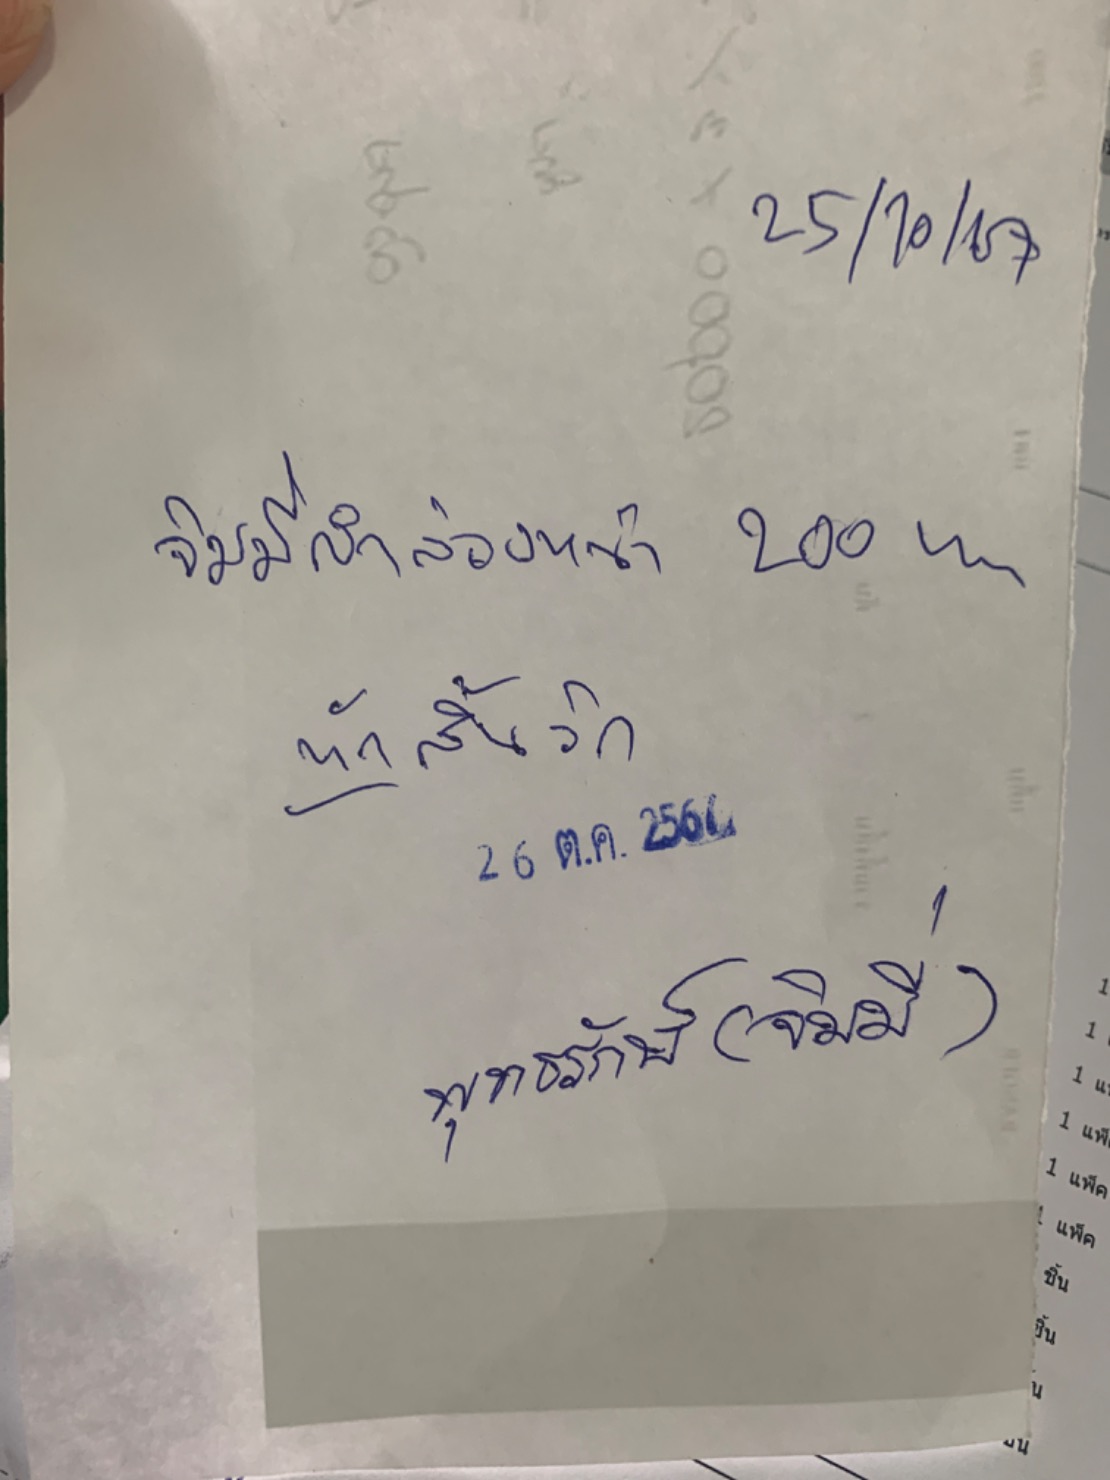 25/10/67
จิมมี่สำล่วงหน้า 200 บาท
หัก สิ้นวิก
26 ต.ค. 256
พุทธรักษ์ (จิมมี่)
1
1
1 แ
1 แพ็ค
1 แพ็ค
1 แพ็ค
ชิ้น
ชิ้น